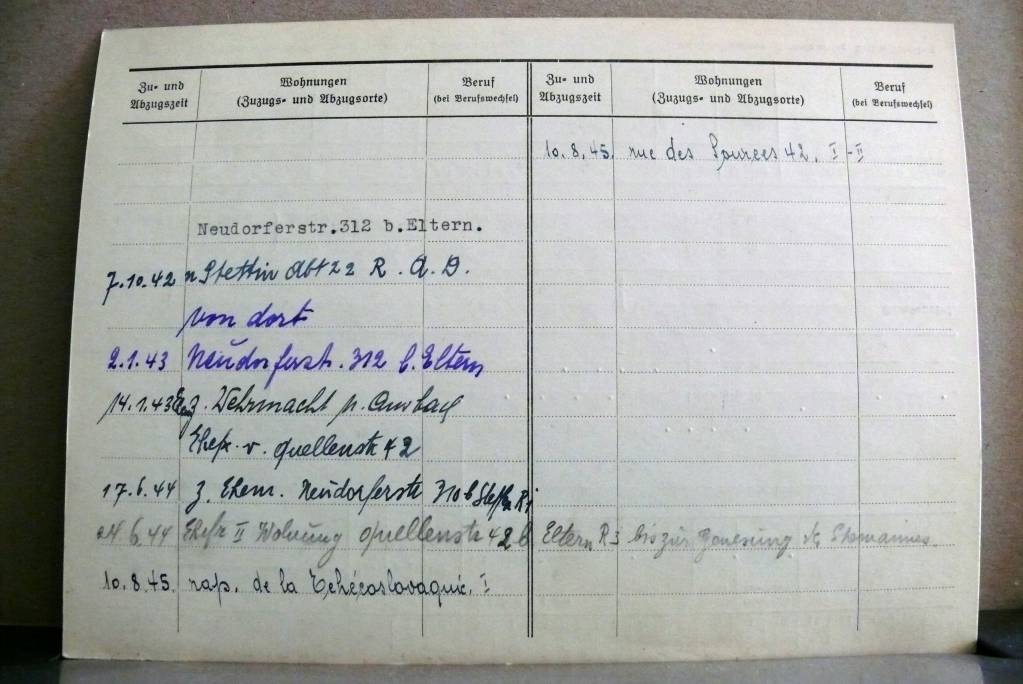 Zu- und Abzugszeit
Wohnungen
(Zuzugs- und Abzugsorte)
Beruf
(bei Berufswechsel)
Zu- und Abzugszeit
Wohnungen
(Zuzugs- und Abzugsorte)
Beruf
(bei Berufswechsel)
Neudorferstr.312 b.Eltern.
7.10.42 n Stettin Abt 22 R.A.D.
von dort
2.1.43 Neudorferstr. 312 b. Eltern
14.1.43 z. Wehrmacht n.
Ehefr. v. Quellenstr 42
17.6.44 z. Ehem. Neudorferstr 310 b
6.44 Ehefr II Wohnung Quellenstr 42 b Eltern R3 bis zur Genesung des Ehemannes.
10.8.45. rap. de la Tchécoslovaquie. I
10.8.45. rue des Sources 42. I-II